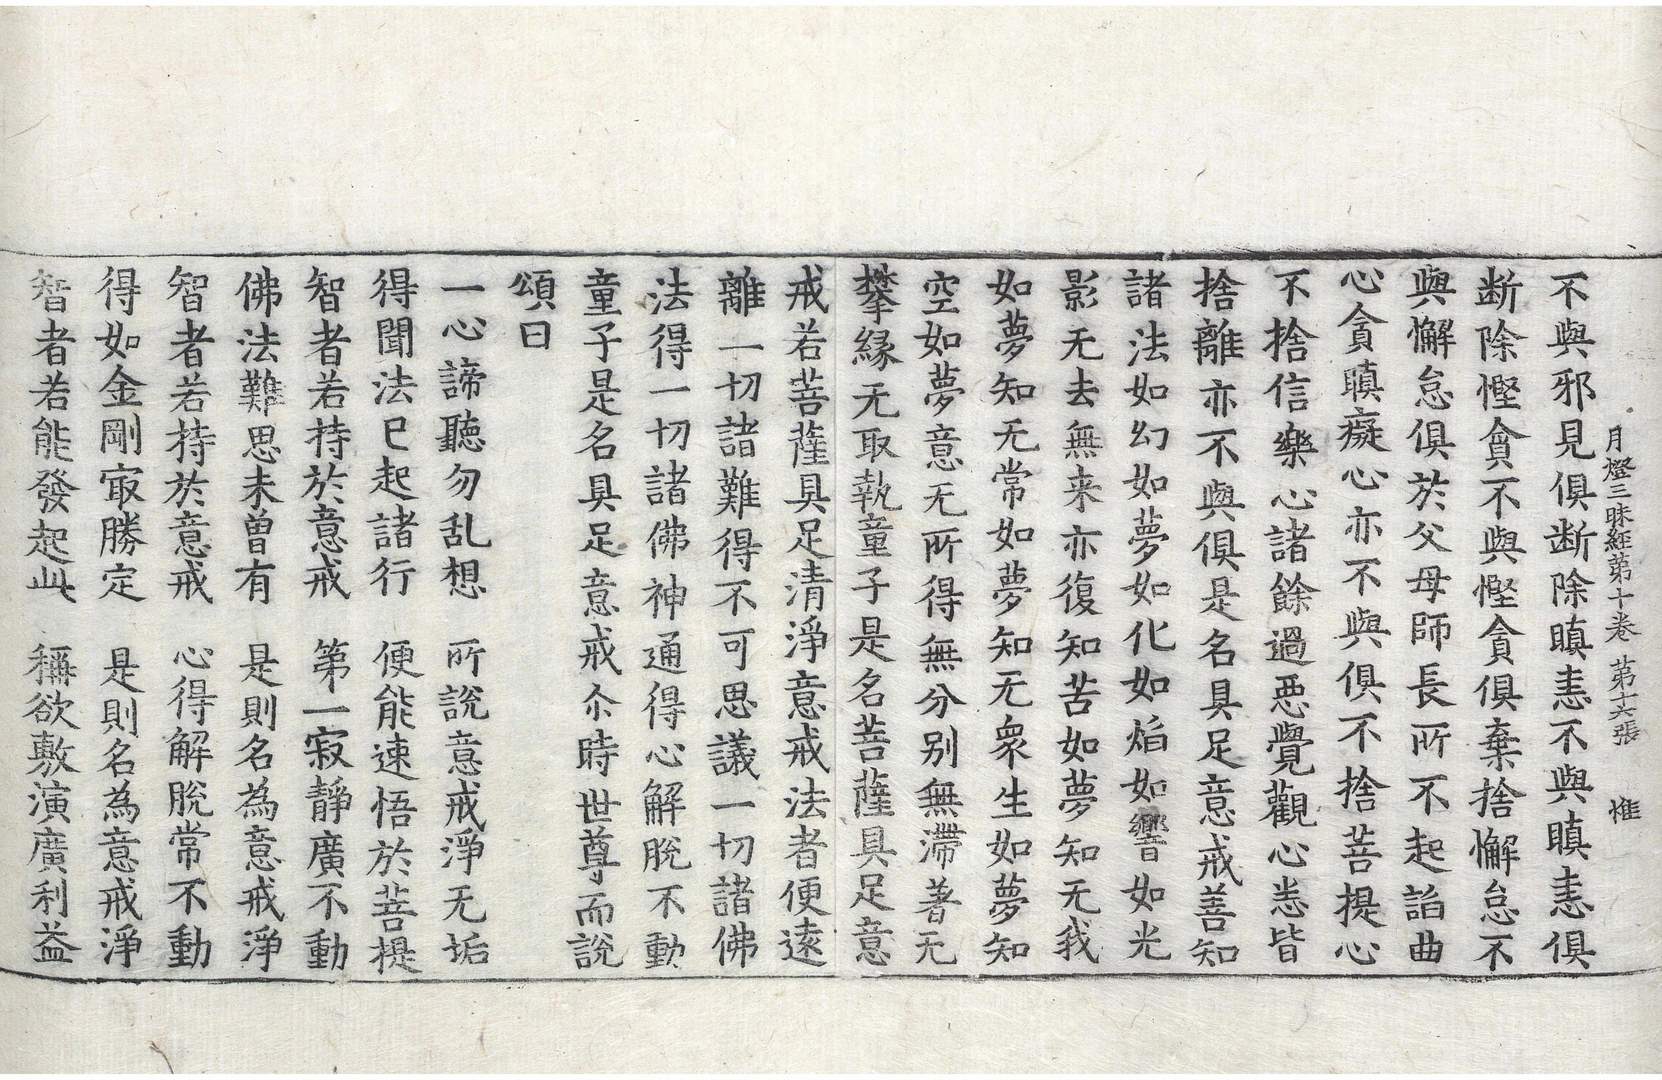 月燈三昧經第十卷 第十六張 惟
不與邪見俱断除瞋恚不與瞋恚俱
断除慳貪不與慳貪俱棄捨懈怠不
與懈怠俱於父母師長所不起諂曲
心貪瞋癡心亦不與俱不捨菩提心
不捨信樂心諸餘過惡覺觀心恙皆
捨離亦不與俱是名具足意戒善知
諸法如幻如夢如化如焰如響如光
影无去無来亦復知苦如夢知无我
如夢知无常如夢知无衆生如夢知
空如夢意无所得無分别無滯著无
攀縁无取執童子是名菩薩具足意
戒若菩薩具足清淨意戒法者便遠
離一切諸難得不可思議一切諸佛
法得一切諸佛神通得心解脫不動
童子是名具足意戒尒時世尊而說
頌曰
一心諦聽勿乱想 所說意戒淨无垢
得聞法已起諸行 便能速悟於菩提
智者若持於意戒 第一寂靜廣不動
佛法難思未曾有 是則名為意戒淨
智者若持於意戒 心得解脫常不動
得如金剛㝡勝定 是則名為意戒淨
智者若能發起此 稱欲敷演廣利益